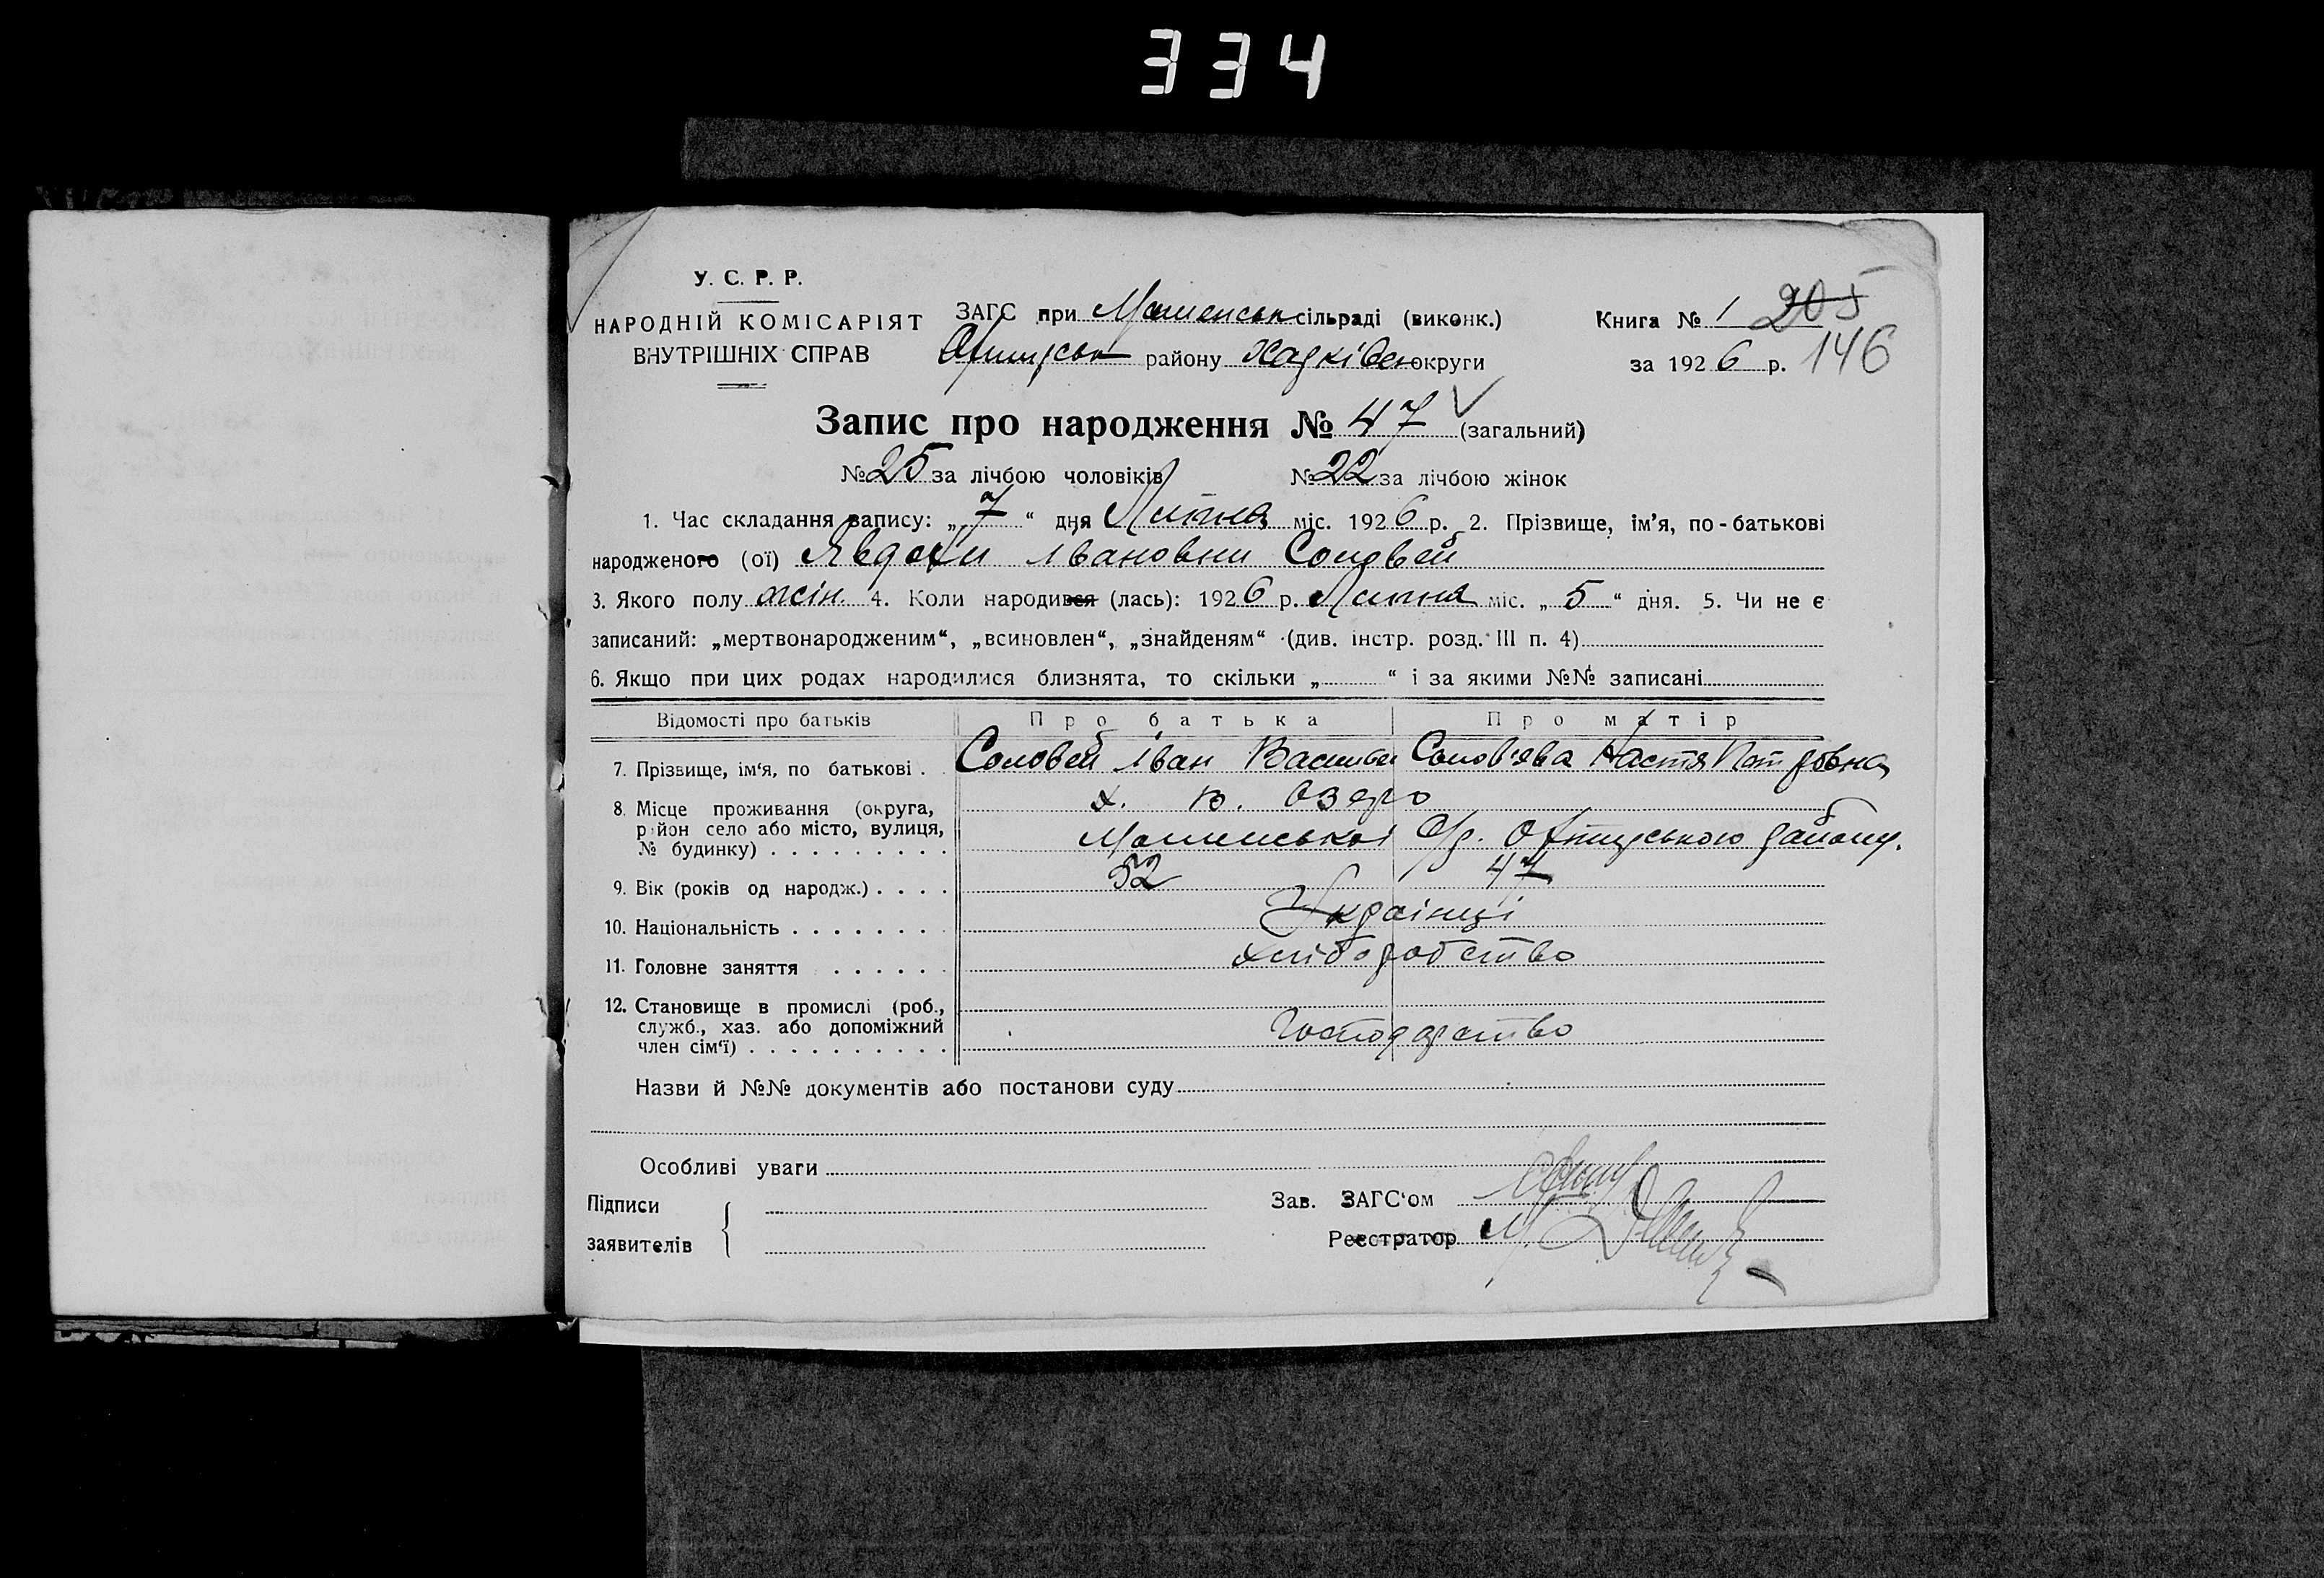 334
У. С. Р. Р.
НАРОДНІЙ КОМІСАРІЯТ
ВНУТРІШНІХ СПРАВ
ЗАГС при сільраді (виконк.)
району Харківськ округи
Книга № 1 205
за 1926 р. 146
Запис про народження № 47 (загальний)
№ 25 за лічбою чоловіків № 22 за лічбою жінок
1. Час складання запису: „7“ дня Липня міс. 1926 р. 2. Прізвище, ім’я, по-батькові
народженого (ої) Явдохи Івановни Соловей
3. Якого полу жін. 4. Коли народився (лась): 1926 р. Липня міс. „5“ дня. 5. Чи не є
записаний: „мертвонародженим“, „всиновлен“, „знайденям“ (див. інстр. розд. III п. 4)
6. Якщо при цих родах народилися близнята, то скільки „ “ і за якими №№ записані
Відомості про батьків Про батька Про матір
7. Прізвище, ім‘я, по батькові . Соловей Іван Васильев Солов'ева Настя Петровна
8. Місце проживання (округа, х. В. Озеро
район село або місто, вулиця,
№ будинку) . . . . . . . . . с/р. району.
9. Вік (років од народж.) . . . . 52 47
10. Національність . . . . . . . . Українці
11. Головне заняття . . . . . . хліборобство
12. Становище в промислі (роб.,
служб., хаз. або допоміжний Господарство
член сім‘ї) . . . . . . . . . .
Назви й №№ документів або постанови суду
Особливі уваги
Підписи
заявителів
Зав. ЗАГС‘ом
Реєстратор